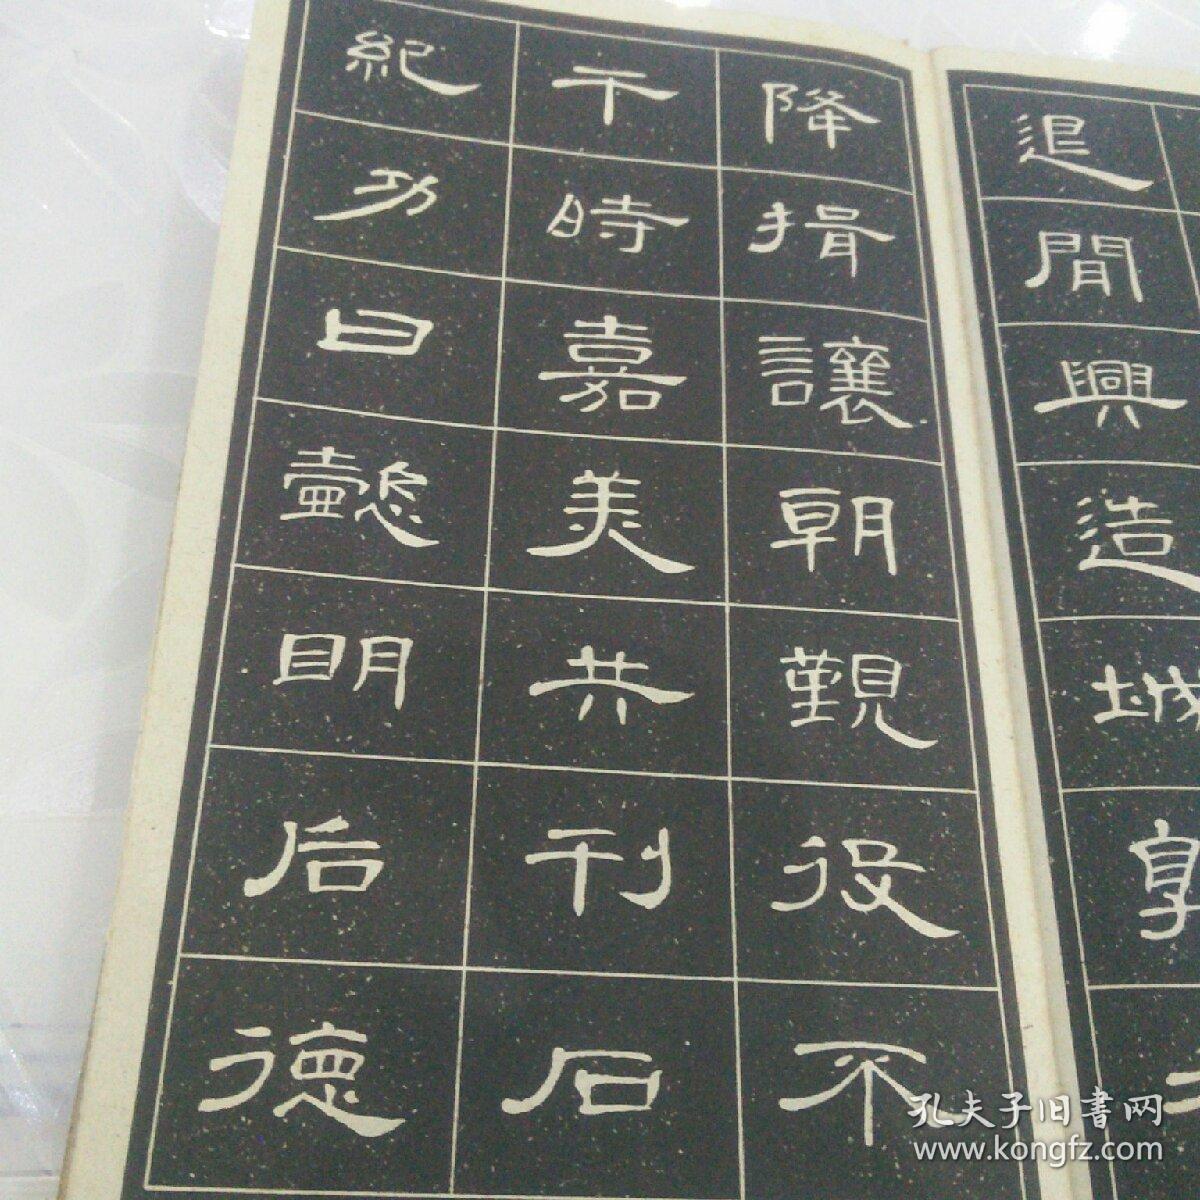 退閒興造城
降揖讓朝覲役不
干時嘉美共刊石
紀功曰懿明后德
孔夫子旧書网
www.kongfz.com